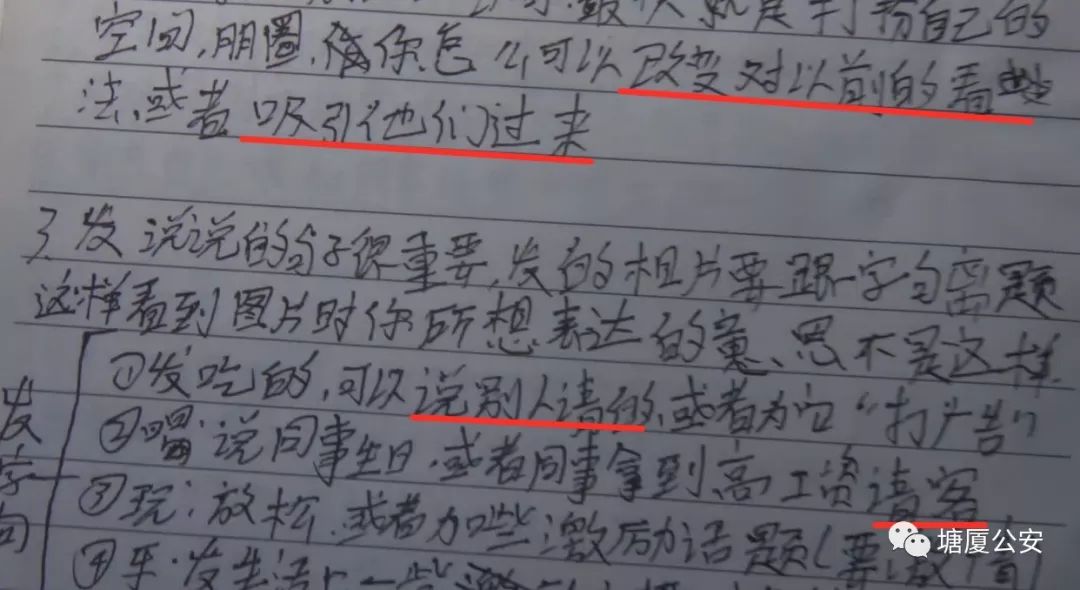 就是打扮自己的
空间,朋圈,借你怎么可以改变对以前的看
法,或者吸引他们过来
3、发说说的句子很重要,发的相片要跟字句离题
这样看到图片时你所想表达的意、思不是这样
①发吃的,可以说别人请的,或者为它“打广告”
②喝:说同事生日,或者同事拿到高工资请客
③玩:放松,或者加些激励话题(要
④乐:发生活上一些
发字句
塘厦公安